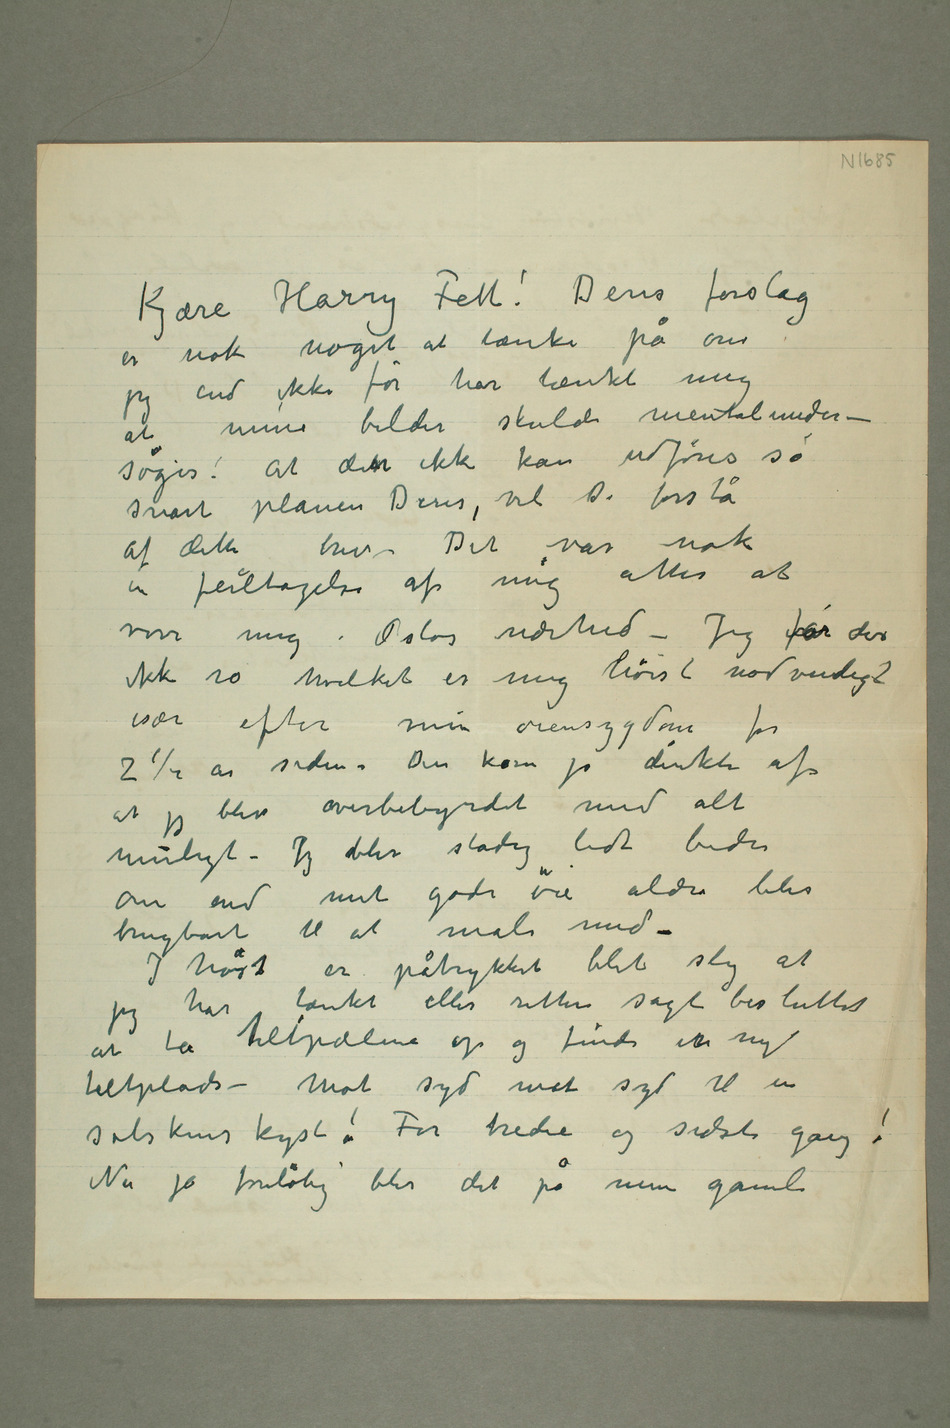 N1685
Kjære Harry Fett! Deres forslag
er nok noget at tænke på om
jeg end ikke för har tænkt mig
at mine bilder skulde mentalunder–
søges! At den ikke kan udføres så
snart planen Deres, vil De forstå
af dette brev – Det var nok
en feiltagelse af mig atter at
vove mig i Oslos nærhed – Jeg får der
ikke ro hvilket er mig høist nødvendigt
især efter min øiensygdom for
2 1/2 år siden. Den kom jo direkte af
at jeg blev overbebyrdet med alt
muligt – Jeg blir stadig lidt bedre
om end mit gode öie aldrig blir
brugbart til at male med –
I høst er påtrykket blet slig at
jeg har tænkt eller rettere sagt besluttet
at ta teltpælene op og finde en ny
teltplads – Mot syd mot syd til en
solskins kyst! For tredie og sidste gang!
Nu ja foreløbig blir det på mine gamle